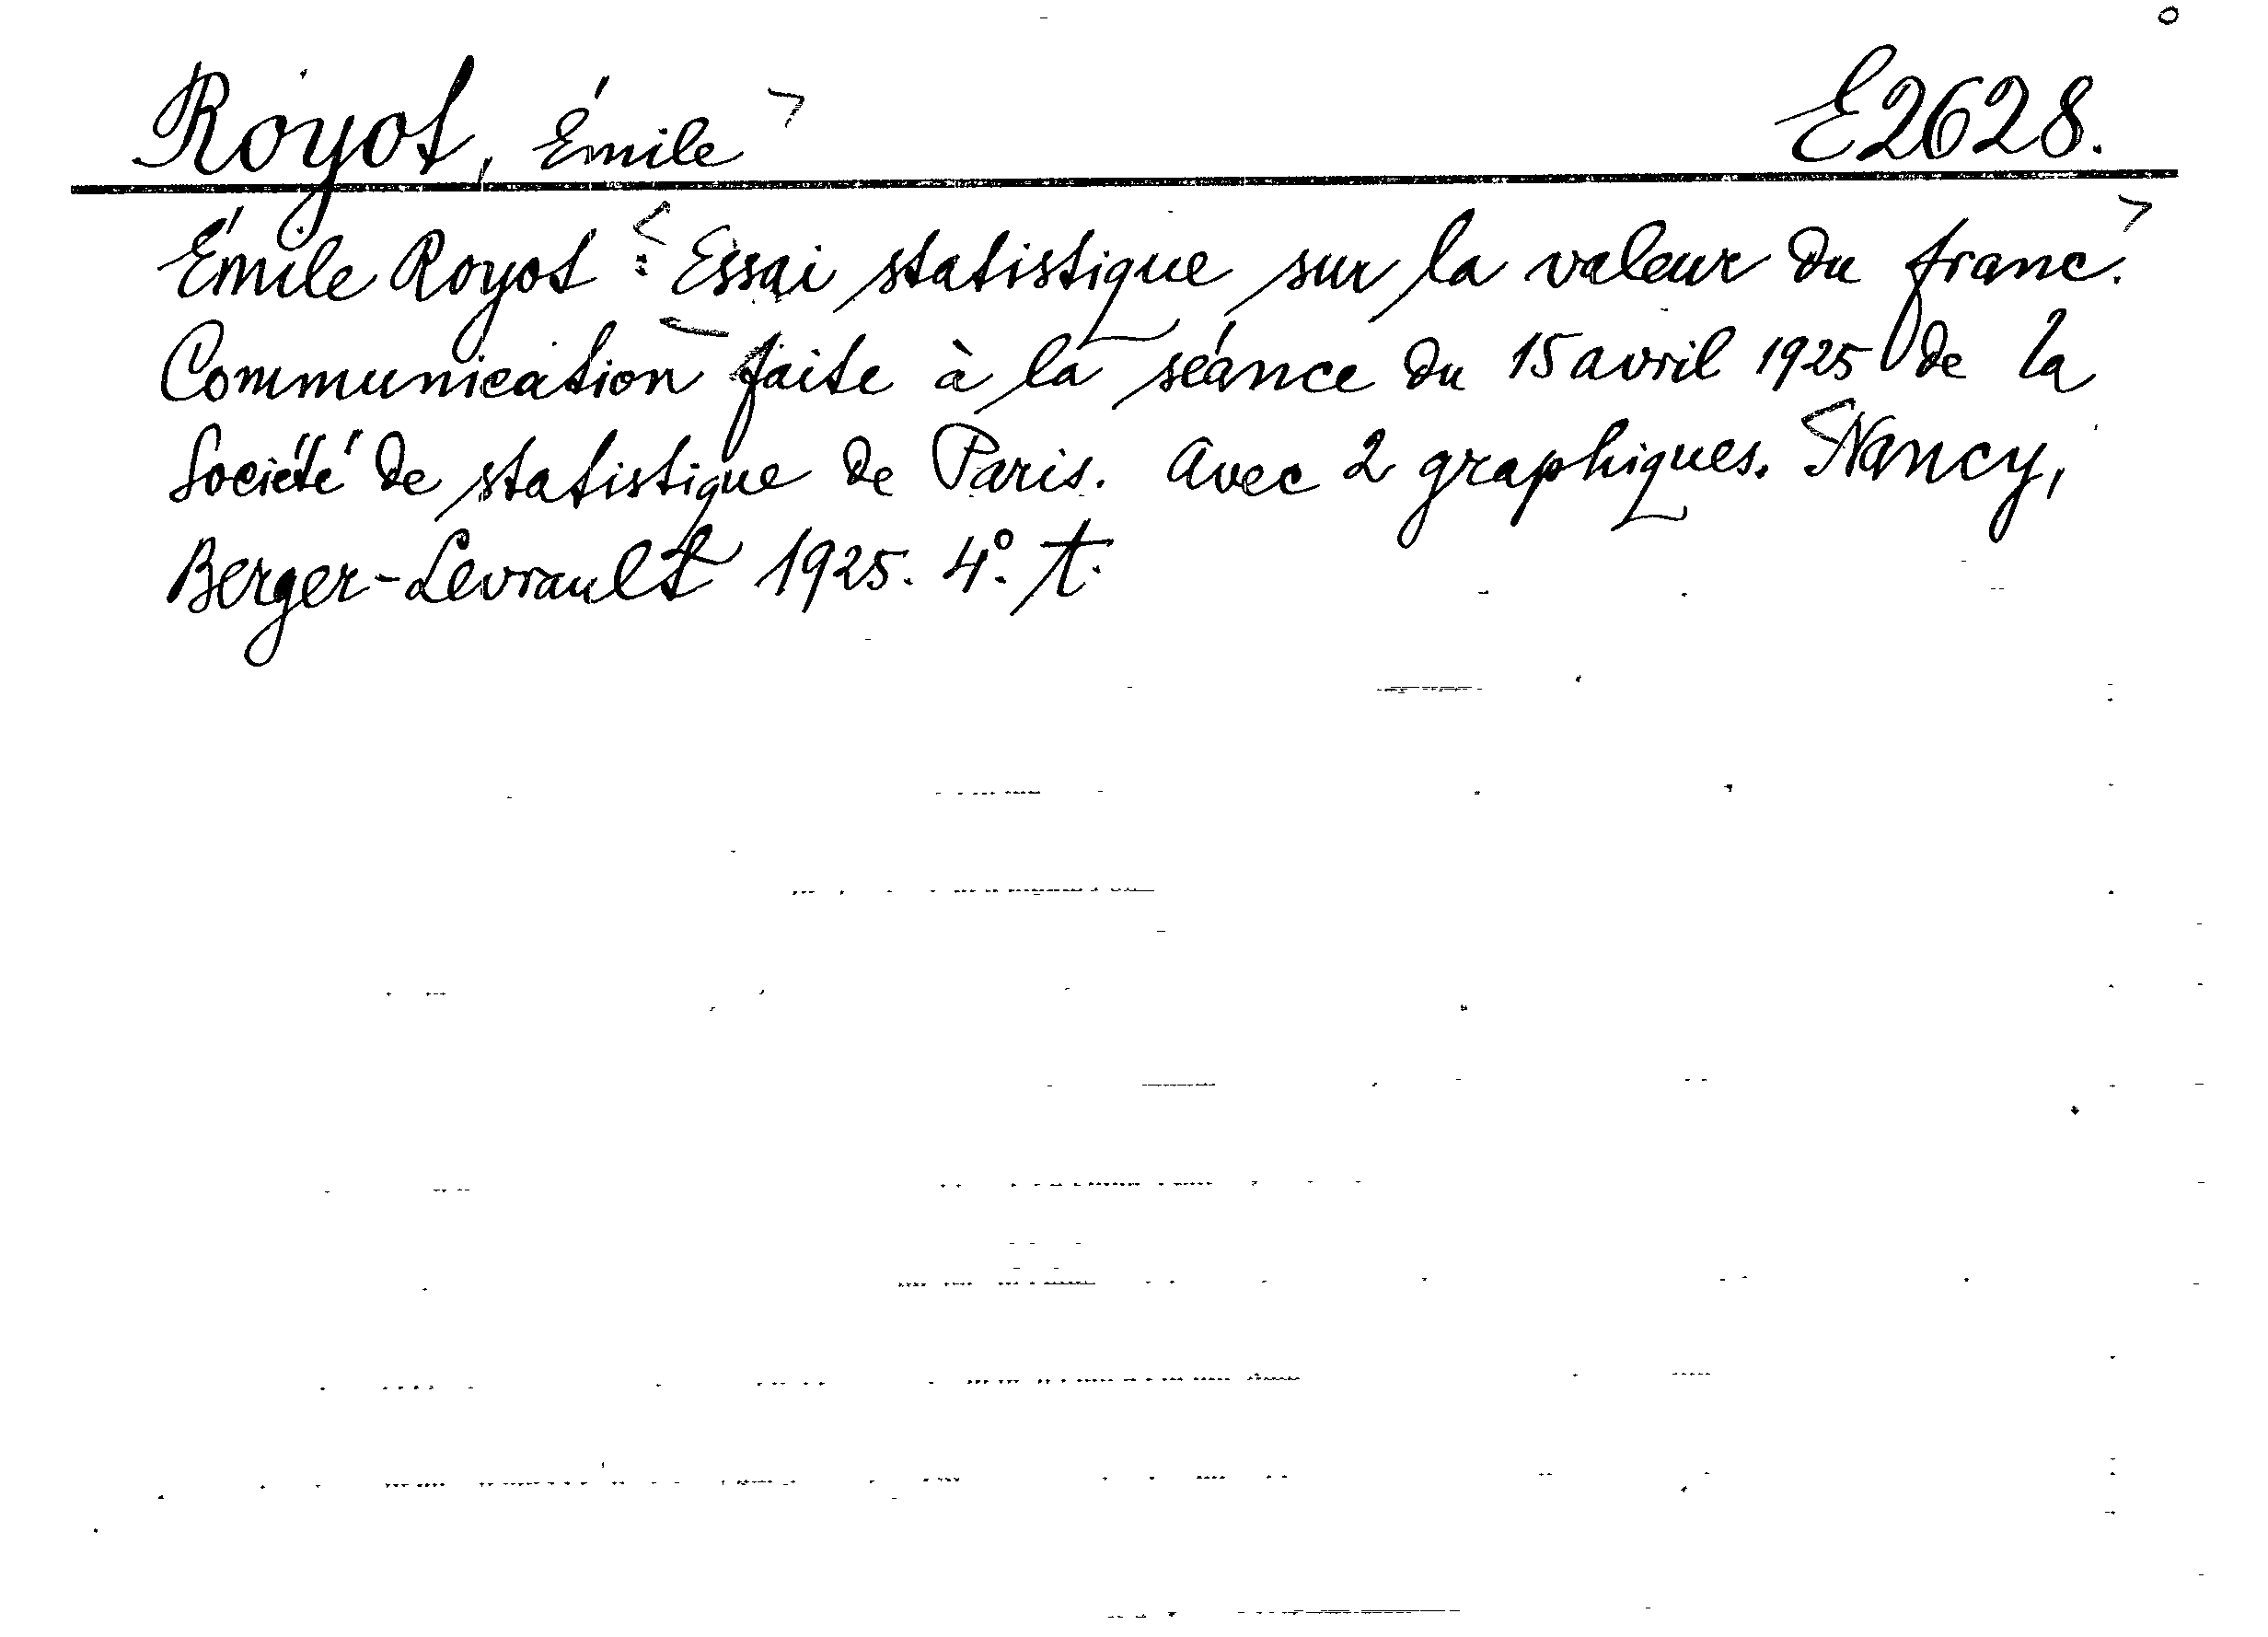 Royot, Émile E2628.
Émile Royot: Essai statistique sur la valeur du franc.
Communication faite à la séance du 15 avril 1925 de la
Société de statistique de Paris. Avec 2 graphiques. Nancy,
Berger-Levrault 1925. 4°. t.